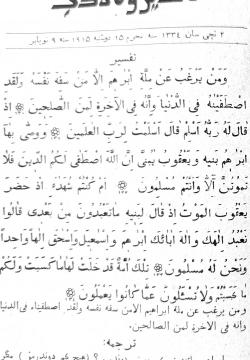 ٢ نچی سان ١٣٣٤ سنه
١٩١٥ سنه ٩ نویابر
تفسیر
وَمَنْ يَرْغَبُ عَنْ مِلَّةِ اِبْرٰهِمَ اِلَّا مَنْ سَفِهَ نَفْسَهُ وَلَقَدِ
اصْطَفَيْنٰهُ فِي الدُّنْيَا وَاِنَّهُ فِي الْآخِرَةِ لَمِنَ الصّٰلِحِينَ ۞ اِذْ
قَالَ لَهُ رَبُّهُ اَسْلِمْ قَالَ اَسْلَمْتُ لِرَبِّ الْعٰلَمِينَ ۞ وَوَصّٰى بِهَا
اِبْرٰهِمُ بَنِيهِ وَيَعْقُوبُ يٰبَنِيَّ اِنَّ اللّٰهَ اصْطَفٰى لَكُمُ الدِّينَ فَلَا
تَمُوتُنَّ اِلَّا وَاَنْتُمْ مُسْلِمُونَ ۞ اَمْ كُنْتُمْ شُهَدَاءَ اِذْ حَضَرَ
يَعْقُوبَ الْمَوْتُ اِذْ قَالَ لِبَنِيهِ مَاتَعْبُدُونَ مِنْ بَعْدِى قَالُوا
نَعْبُدُ اِلٰهَكَ وَاِلٰهَ اٰبَائِكَ اِبْرٰهِمَ وَاِسْمٰعِيلَ وَاِسْحٰقَ اِلٰهًا وَاحِدًا
وَنَحْنُ لَهُ مُسْلِمُونَ ۞ تِلْكَ اُمَّةٌ قَدْ خَلَتْ لَهَا مَا كَسَبَتْ وَلَكُمْ
مَا كَسَبْتُمْ وَلَا تُسْئَلُونَ عَمَّا كَانُوا يَعْمَلُونَ ۞
ومن يرغب عن ملة ابراهيم الامن سفه نفسه ولقد اصطفيناه فى الدنيا
وانه فى الآخرة لمن الصالحين.
ترجمه: